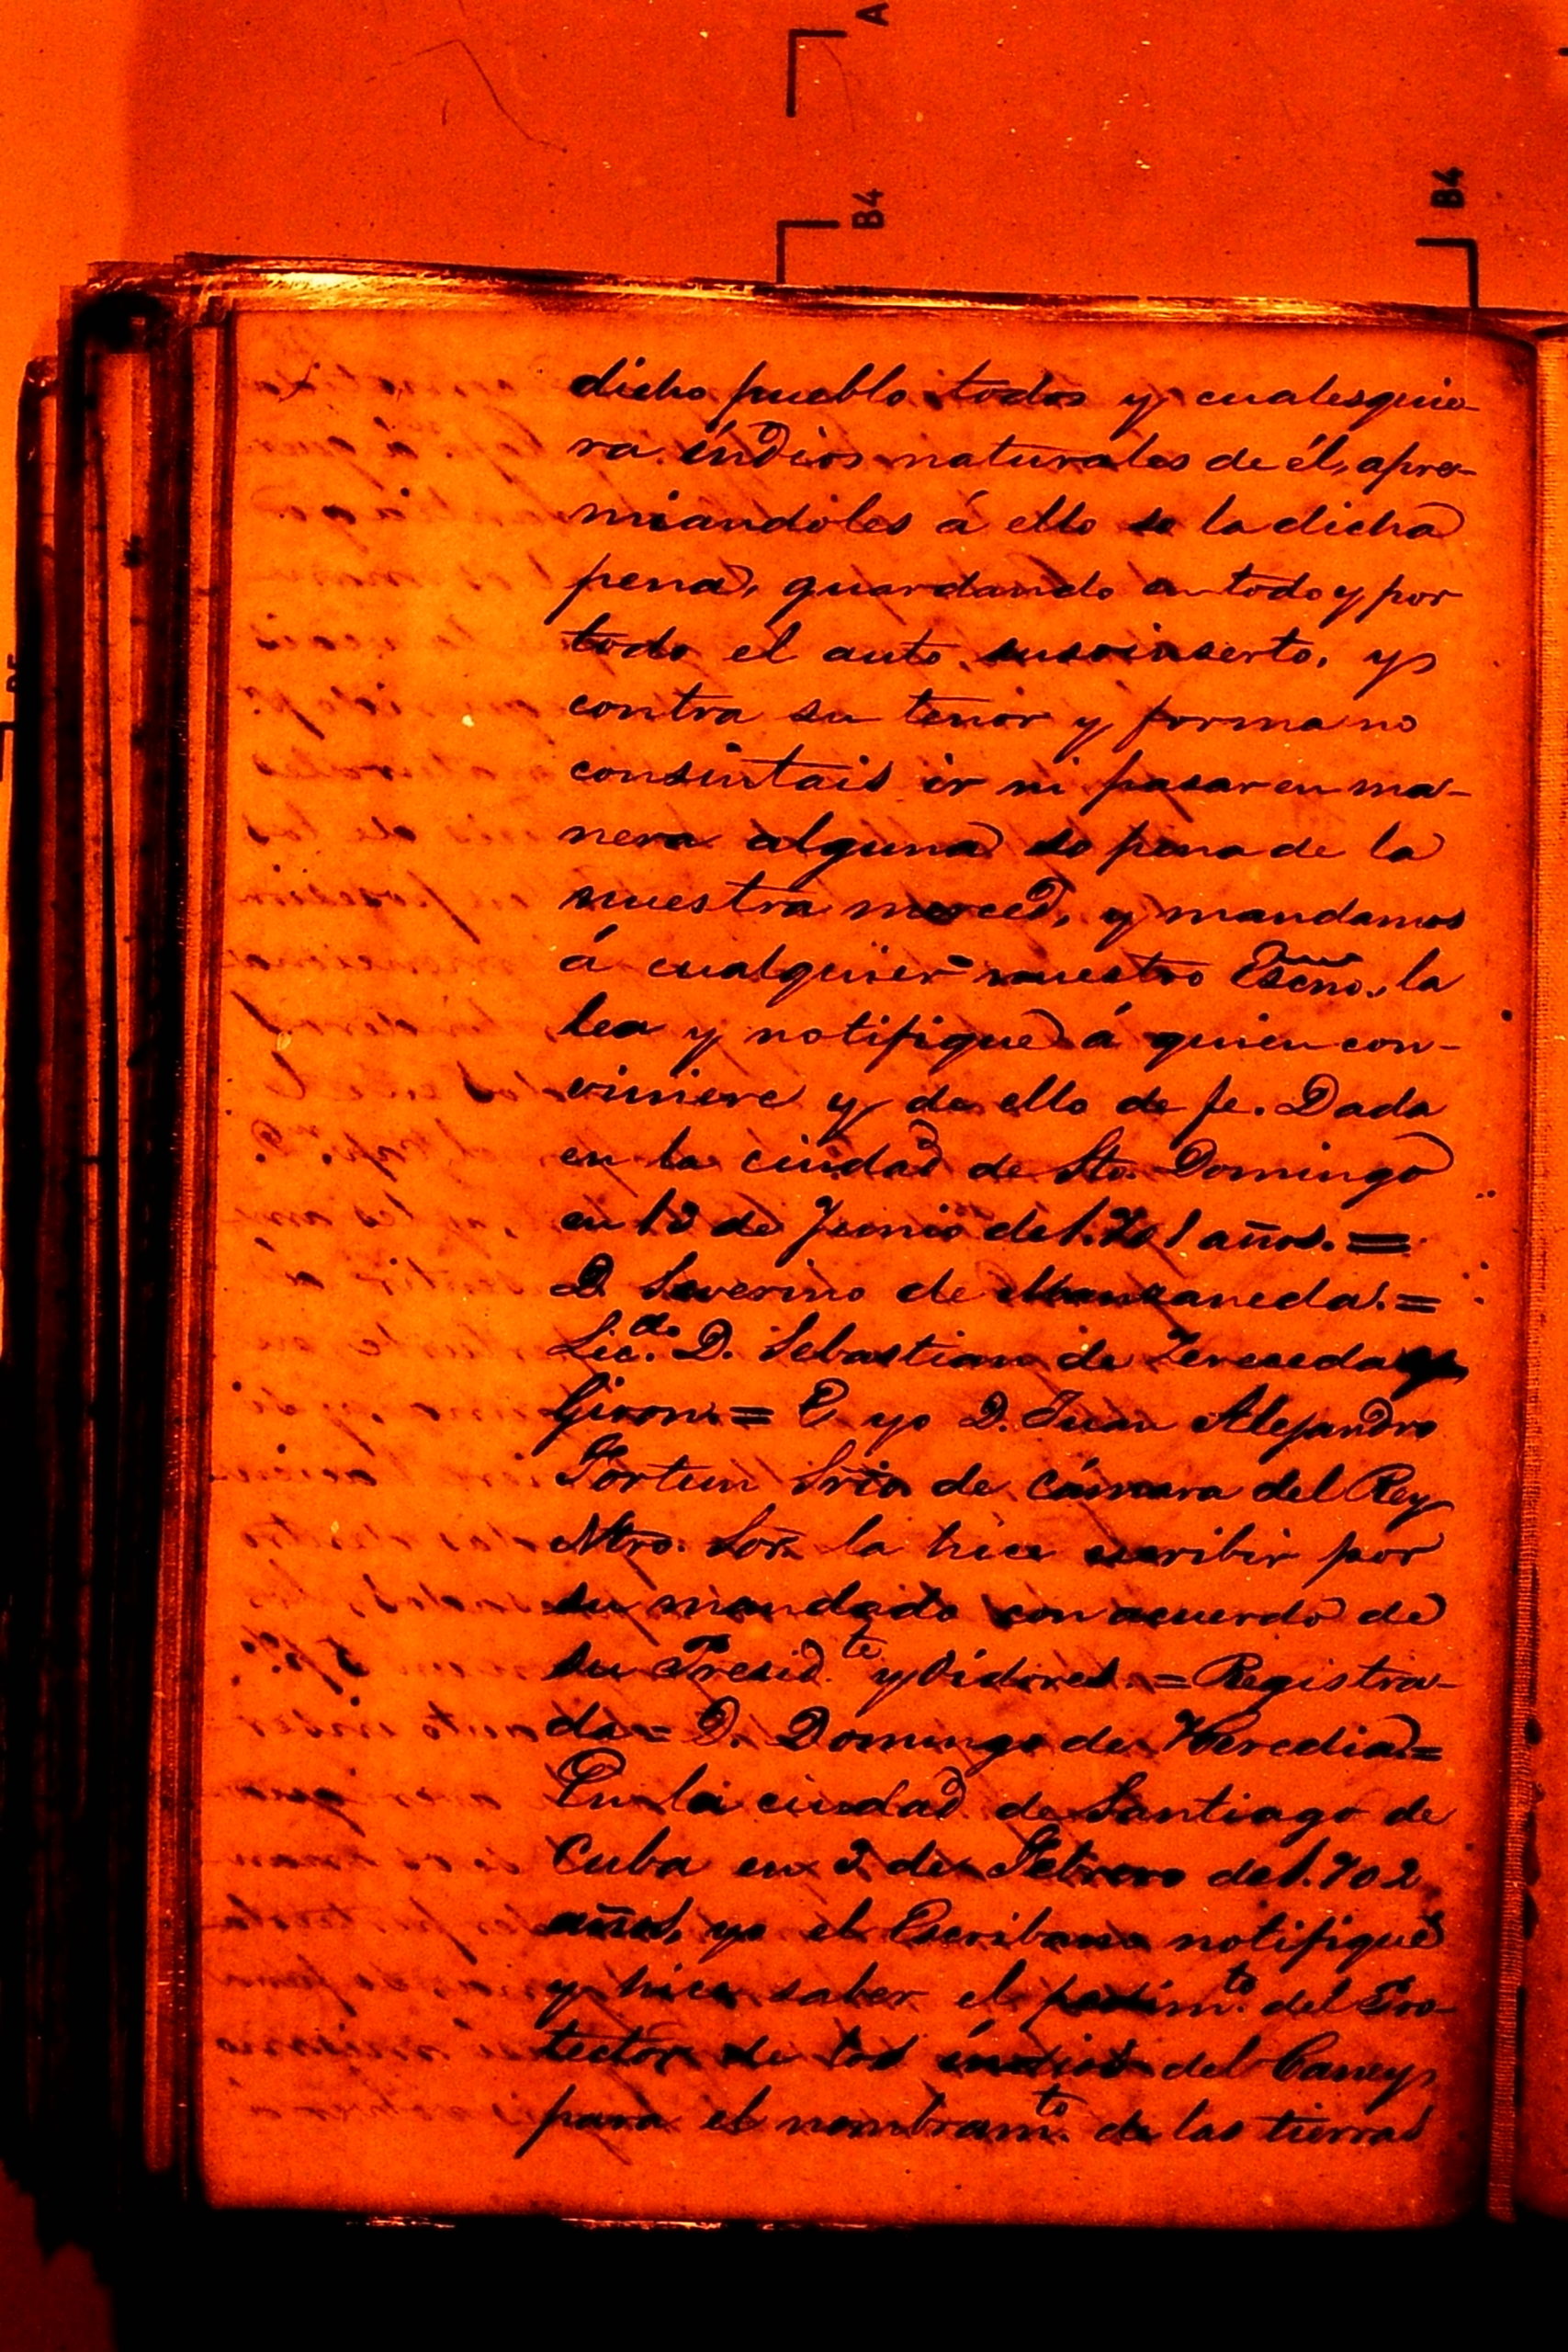 A
B4
B4
dicho pueblo todos y cualesquie-
ra índios naturales de él, apre-
miandoles á ello so la dicha
pena, guardando en todo y por
todo el auto susoinserto, y
contra su tenor y forma no
consintais ir ni pasar en ma-
nera alguna so pena de la
nuestra merced, y mandamos
á cualquier nuestro Escno. la
lea y notifique á quien con-
viniere y de ello de fe. Dada
en la ciudad de Sto. Domingo
en de Junio de 1.701 años. =
D. Severino de Manzaneda. =
Licdo. D. Sebastian de Cereceda y
Giron. = E yo D. Juan Alejandro
Fortun Srio de cámara del Rey
Ntro. Sor. la hice escribir por
su mandado con acuerdo de
su Presidte. y Oidores. = Registra-
da = D. Domingo de Heredia =
En la ciudad de Santiago de
Cuba en de Febrero de 1.702
años, yo el Escribano notifiqué
y hice saber el pedimto. del Pro-
tector de los índios del Caney
para el nombramto. de las tierras